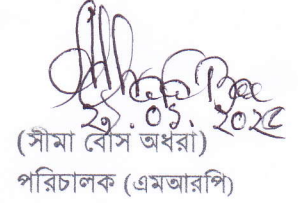 ২১.০১.২০২৫
(সীমা বোস অধরা)
পরিচালক (এমআরপি)